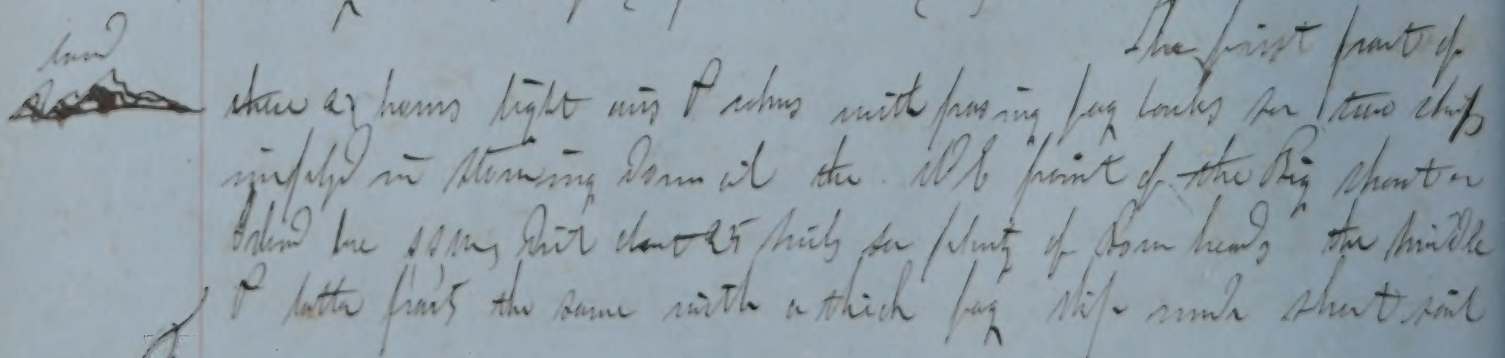 land
The first part of
these 24 hours light airs & calms with passing fog banks saw two ships
employed in stowing down oil the point of the Big Shantar
Island bore dist about 25 miles saw plenty of Bow heads the middle
& latter parts the same with a thick fog ship under short sail